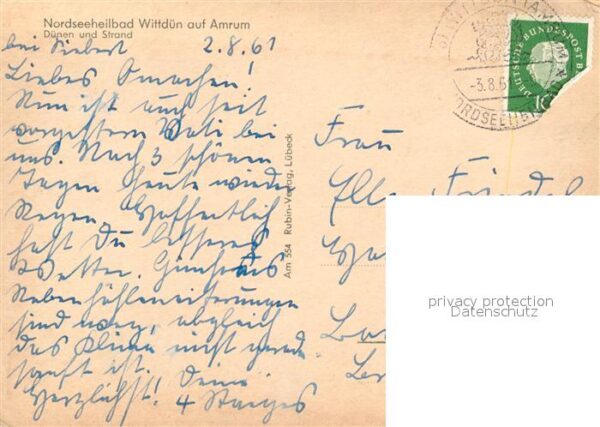 Nordseeheilbad Wittdün auf Amrum
Dünen und Strand
bei Siebert 2.8.61
Liebes Omachen!
Nun ist auch seit
vorgestern Vati bei
uns. Nach 3 schönen
Tagen heute wieder
Regen. Hoffentlich
hast Du besseres
Wetter. Günther's
Nebenhöhleneiterungen
sind weg, obgleich
das Klima nicht gerade
sanft ist.
Herzlichst! Deine
4
Am 554 Rubin-Verlag, Lübeck
DEUTSCHE BUNDESPOST
10
-3.8.61
NORDSEEHEILBAD
Frau
privacy protection
Datenschutz